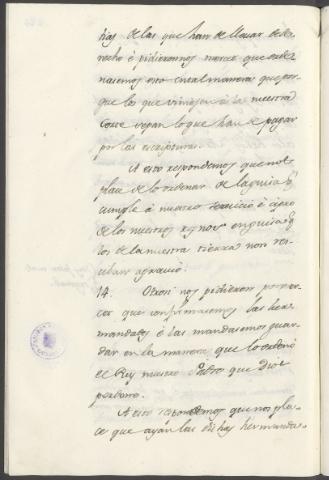 tias de las que han de llevar dere
recho é pidieronnos merce que orde
nasemos esto en tal manera que por
que los que viniesen á la nuestra
Corte sepan lo que han de pagar
por las escripturas.
A esto respondemos que nos
place de lo ordenar de la guisa q.
cumple á nuestro servicio é á pro
de los nuestros regnos en guisa q.
los de la nuestra tierra non res
ciban agravio.
14. Otrosi nos pidieron por mer
cet que confirmasemos las her
mandades é las mandasemos guar
dar en la manera que lo ordenó
el Rey nuestro Padre que Dios
perdone.
A esto respondemos que nos pla
ce que ayan las dichas hermanda-